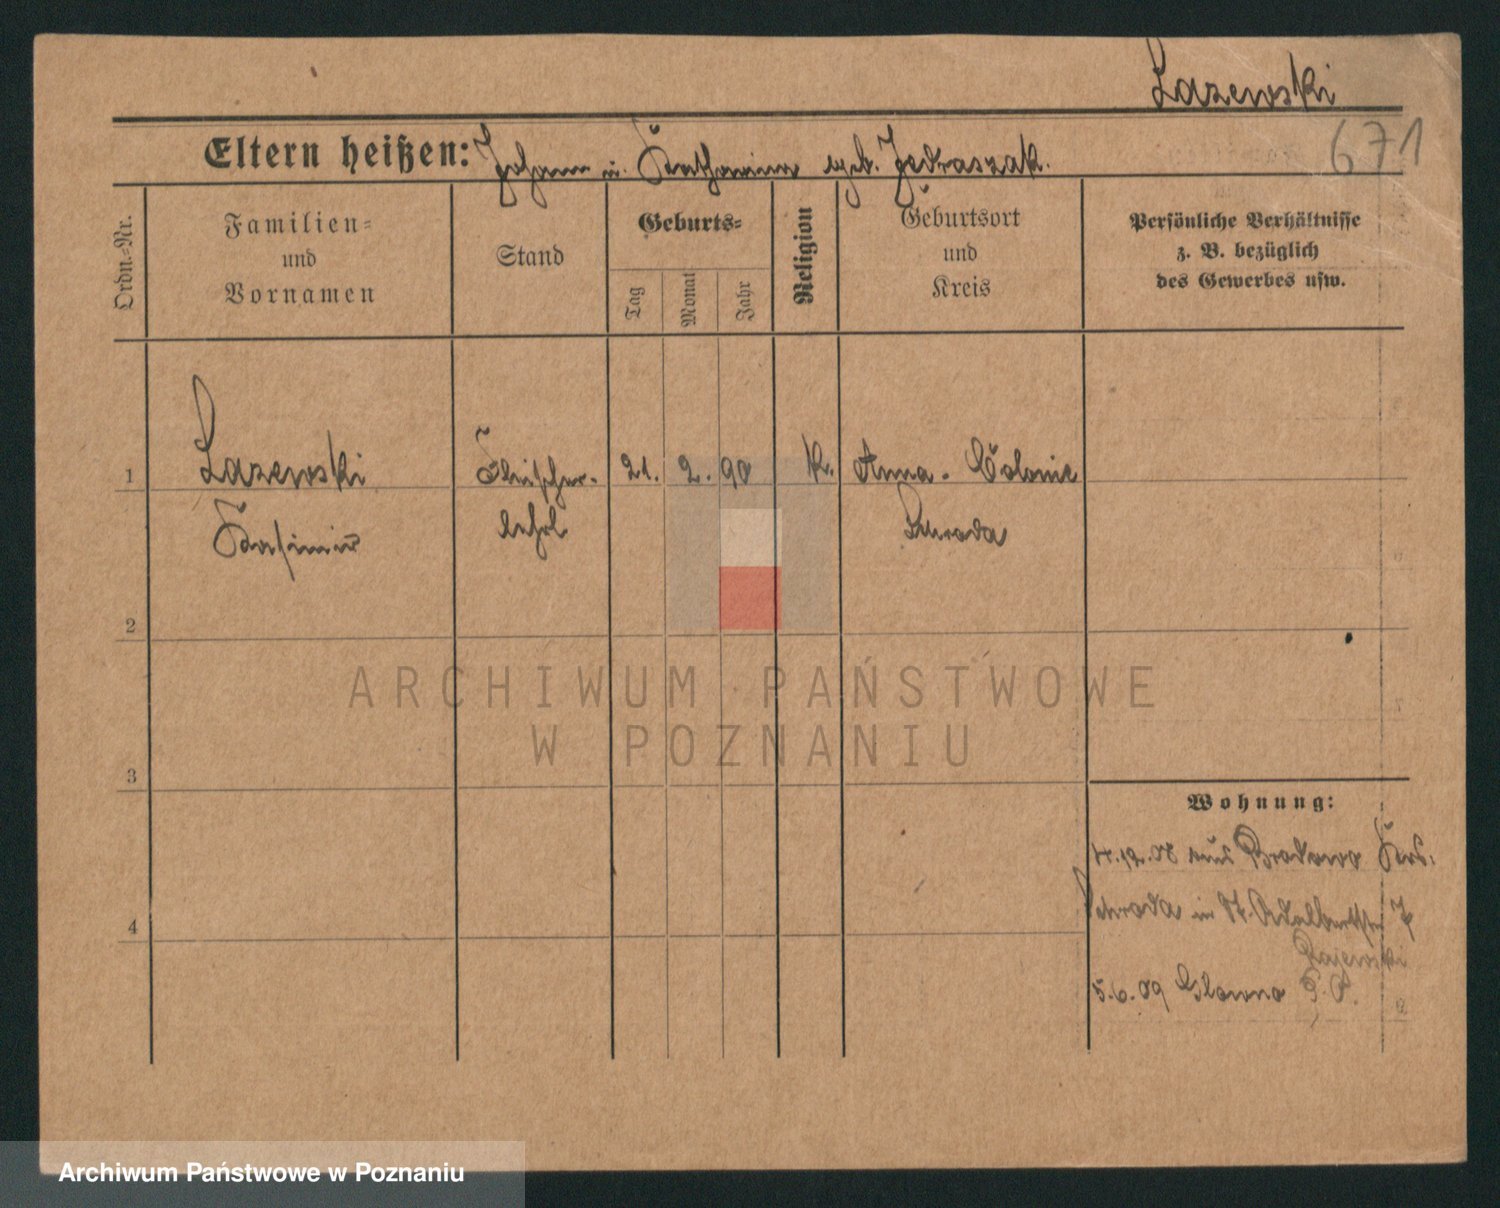 Lazewski
671
Eltern heißen: Johann u. Katharina geb. Jedraszak.
Ordn.-Nr.
Familien-
und
Vornamen
Stand
Geburts-
Tag
Monat
Jahr
Religion
Geburtsort
und
Kreis
Persönliche Verhältnisse
z. B. bezüglich
des Gewerbes usw.
1 Lazewski Fleischer- 21. 2. 90 k. Anna-Colonie
Kasimir lehrl Schroda
2
3
4
Wohnung:
4.12.08 aus Brodowo Krs.
Schroda in St. Adalbertstr 7
Rajewski
5.6.09 Glowno P. P.
ARCHIWUM PAŃSTWOWE
W POZNANIU
Archiwum Państwowe w Poznaniu